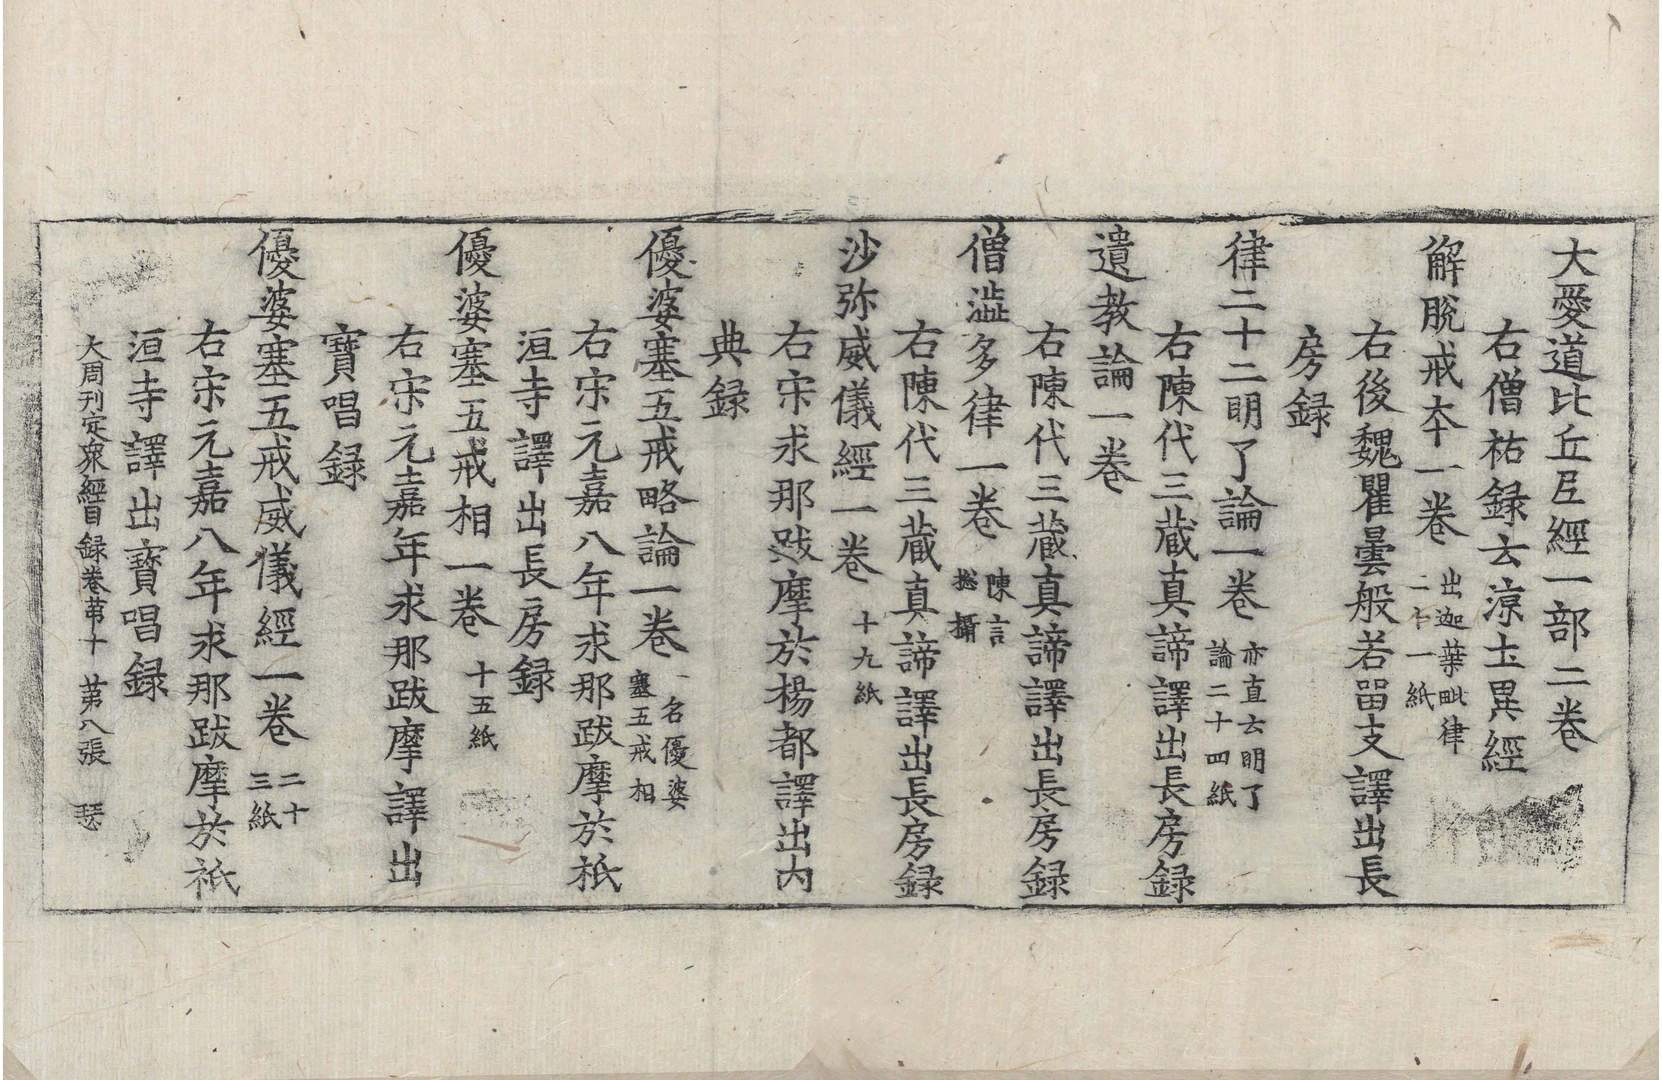 大愛道比丘尼經一部二卷
右僧祐録云涼土異經
解脫戒本一卷 出迦葉毗律二十一紙
右後魏瞿曇般若留支譯出長
房録
律二十二明了論一卷 亦直云明了論二十四紙
右陳代三藏真諦譯出長房録
遺教論一卷
右陳代三藏真諦譯出長房録
僧澁多律一卷 陳言揔攝
右陳代三藏真諦譯出長房録
沙弥威儀經一卷 十九紙
右宋求那跋摩於楊都譯出内
典録
優婆塞五戒略論一卷 一名優婆塞五戒相
右宋元嘉八年求那跋摩於祇
洹寺譯出長房録
優婆塞五戒相一卷 十五紙
右宋元嘉年求那跋摩譯出
寶唱録
優婆塞五戒威儀經一卷 二十三紙
右宋元嘉八年求那跋摩於祇
洹寺譯出寶唱録
大周刊定衆經目録卷苐十 苐八張 瑟